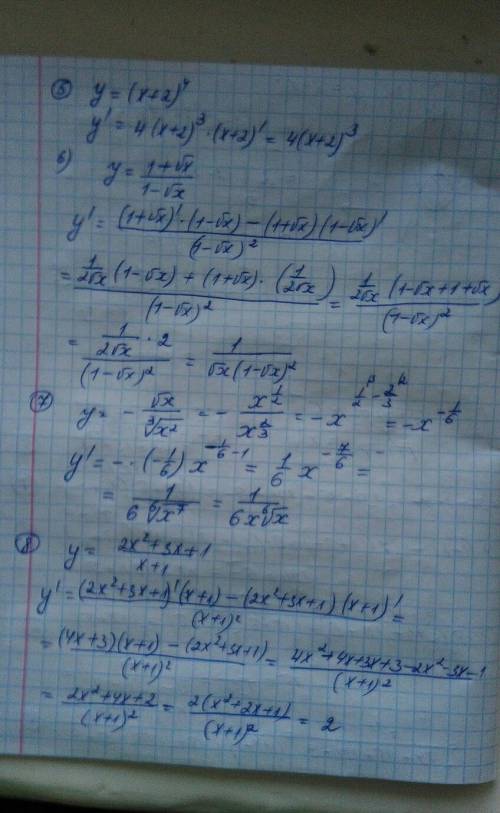 ⑤ y = (x+2)⁴
y' = 4(x+2)³·(x+2)' = 4(x+2)³
6) y = (1+√x)/(1-√x)
y' = ((1+√x)'·(1-√x) - (1+√x)(1-√x)')/(1-√x)²
= (1/(2√x) (1-√x) + (1+√x)·(1/(2√x)))/(1-√x)² = (1/(2√x) (1-√x+1+√x))/(1-√x)²
= (1/(2√x)·2)/(1-√x)² = 1/(√x(1-√x)²)
⑦ y = - √x/∛x² = - x^(1/2)/x^(2/3) = -x^(1/2-2/3) = -x^(-1/6)
y' = -·(-1/6)x^(-1/6-1) = 1/6 x^(-7/6) =
= 1/(6 ⁶√x⁷) = 1/(6x ⁶√x)
⑧ y = (2x²+3x+1)/(x+1)
y' = ((2x²+3x+1)'(x+1) - (2x²+3x+1)(x+1)')/(x+1)² =
= ((4x+3)(x+1) - (2x²+3x+1))/(x+1)² = (4x²+4x+3x+3-2x²-3x-1)/(x+1)²
= (2x²+4x+2)/(x+1)² = 2(x²+2x+1)/(x+1)² = 2